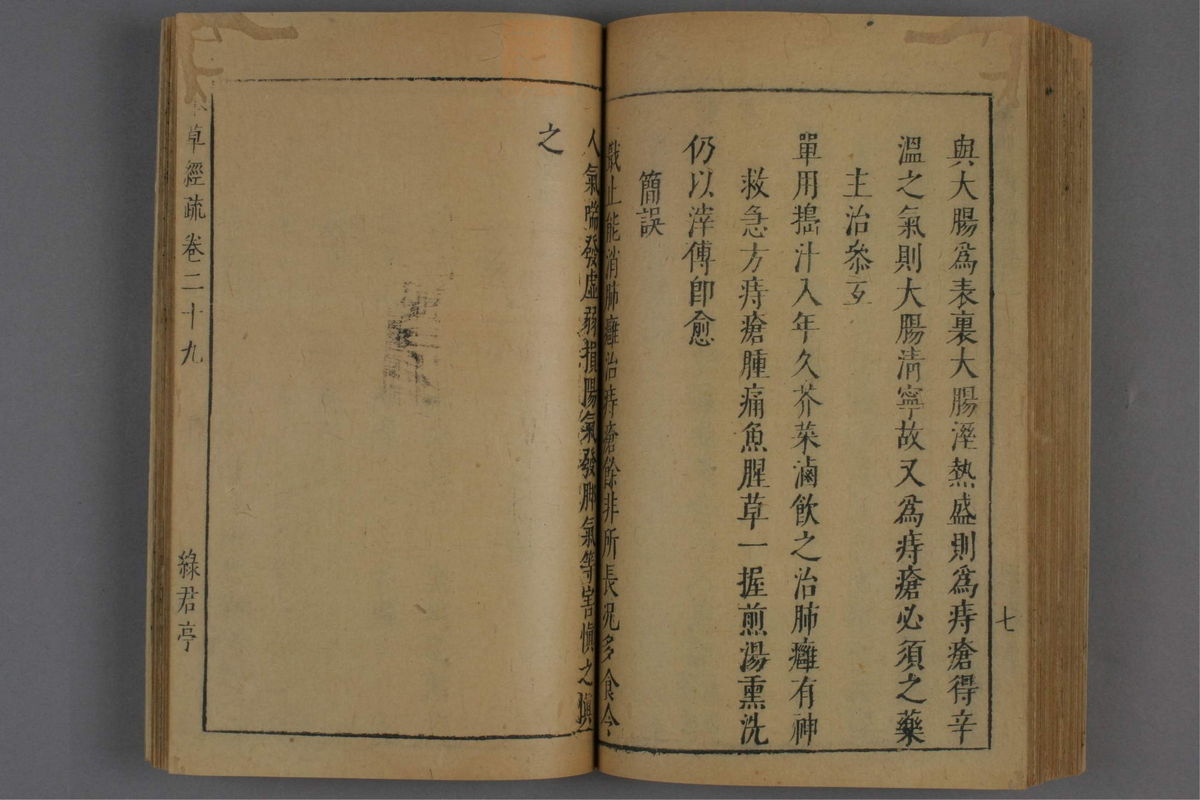 與大腸爲表裏大腸溼熱盛則爲痔瘡得辛
溫之氣則大腸淸寧故又爲痔瘡必須之藥
主治叅互
單用搗汁入年久芥菜滷飲之治肺癰有神
救急方痔瘡腫痛魚腥草一握煎湯熏洗
仍以滓傅卽愈
簡誤
蕺止能消肺癰治痔瘡餘非所長况多食令
人氣喘發虛弱損陽氣發脚氣等害愼之愼
之
草經疏卷二十九
綠君亭
七